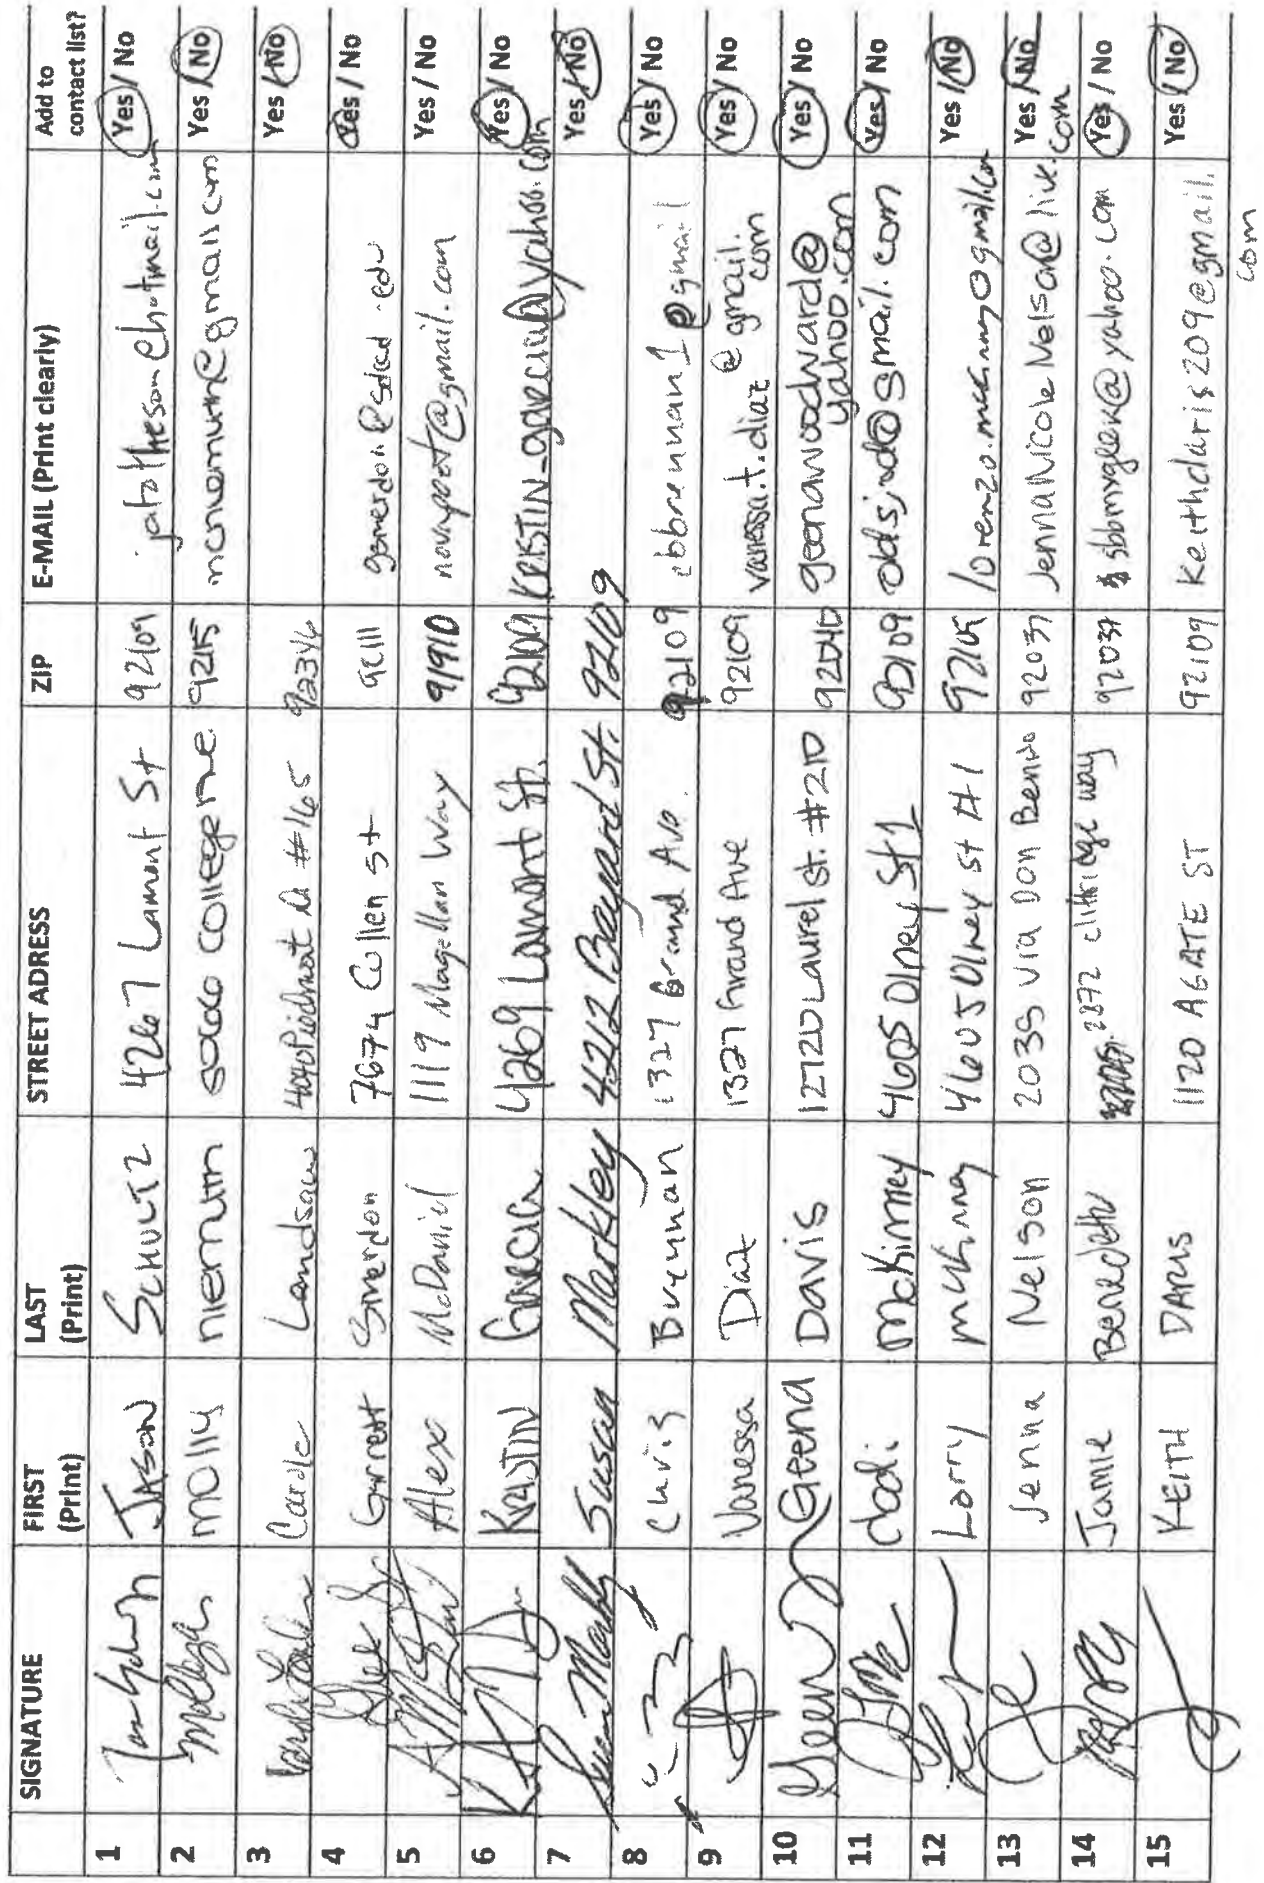 SIGNATURE FIRST (Print) LAST (Print) STREET ADRESS ZIP E-MAIL (Print clearly) Add to contact list?
1 JASON SCHULTZ 4267 Lamont St 92109 Yes / No
2 Molly Niemum 92115 mcniemum@gmail.com Yes / No
3 Carole Landsaw #165 92346 Yes / No
4 Garrett Smerdon 7674 Cullen st 92111 Yes / No
5 Alex McDaniel 1119 Magellan Way 91910 novapoet@gmail.com Yes / No
6 KRISTIN Garcia 4269 Lamont St. 92109 KRISTIN_garcia@yahoo.com Yes / No
7 Susan Markley 4212 Bayard St. 92109 Yes / No
8 Chris Brennan 1327 Grand Ave. 92109 cbbrennan1@gmail Yes / No
9 Vanessa Diaz 1327 Grand Ave 92109 vanessa.t.diaz@gmail.com Yes / No
10 Geena Davis 12720 Laurel St. #210 92040 geenawoodward@yahoo.com Yes / No
11 dodi McKinney 4605 Olney St 1 92109 Yes / No
12 Larry McKinney 4605 Olney St #1 Yes / No
13 Jenna Nelson 2035 Via Don Benito 92037 JennaNicoleNelson@live.com Yes / No
14 Jamie Benedetto 2872 cliffridge way 92037 sbbmxgeek@yahoo.com Yes / No
15 KEITH DARIS 1120 AGATE ST 92109 Keithdaris209@gmail.com Yes / No